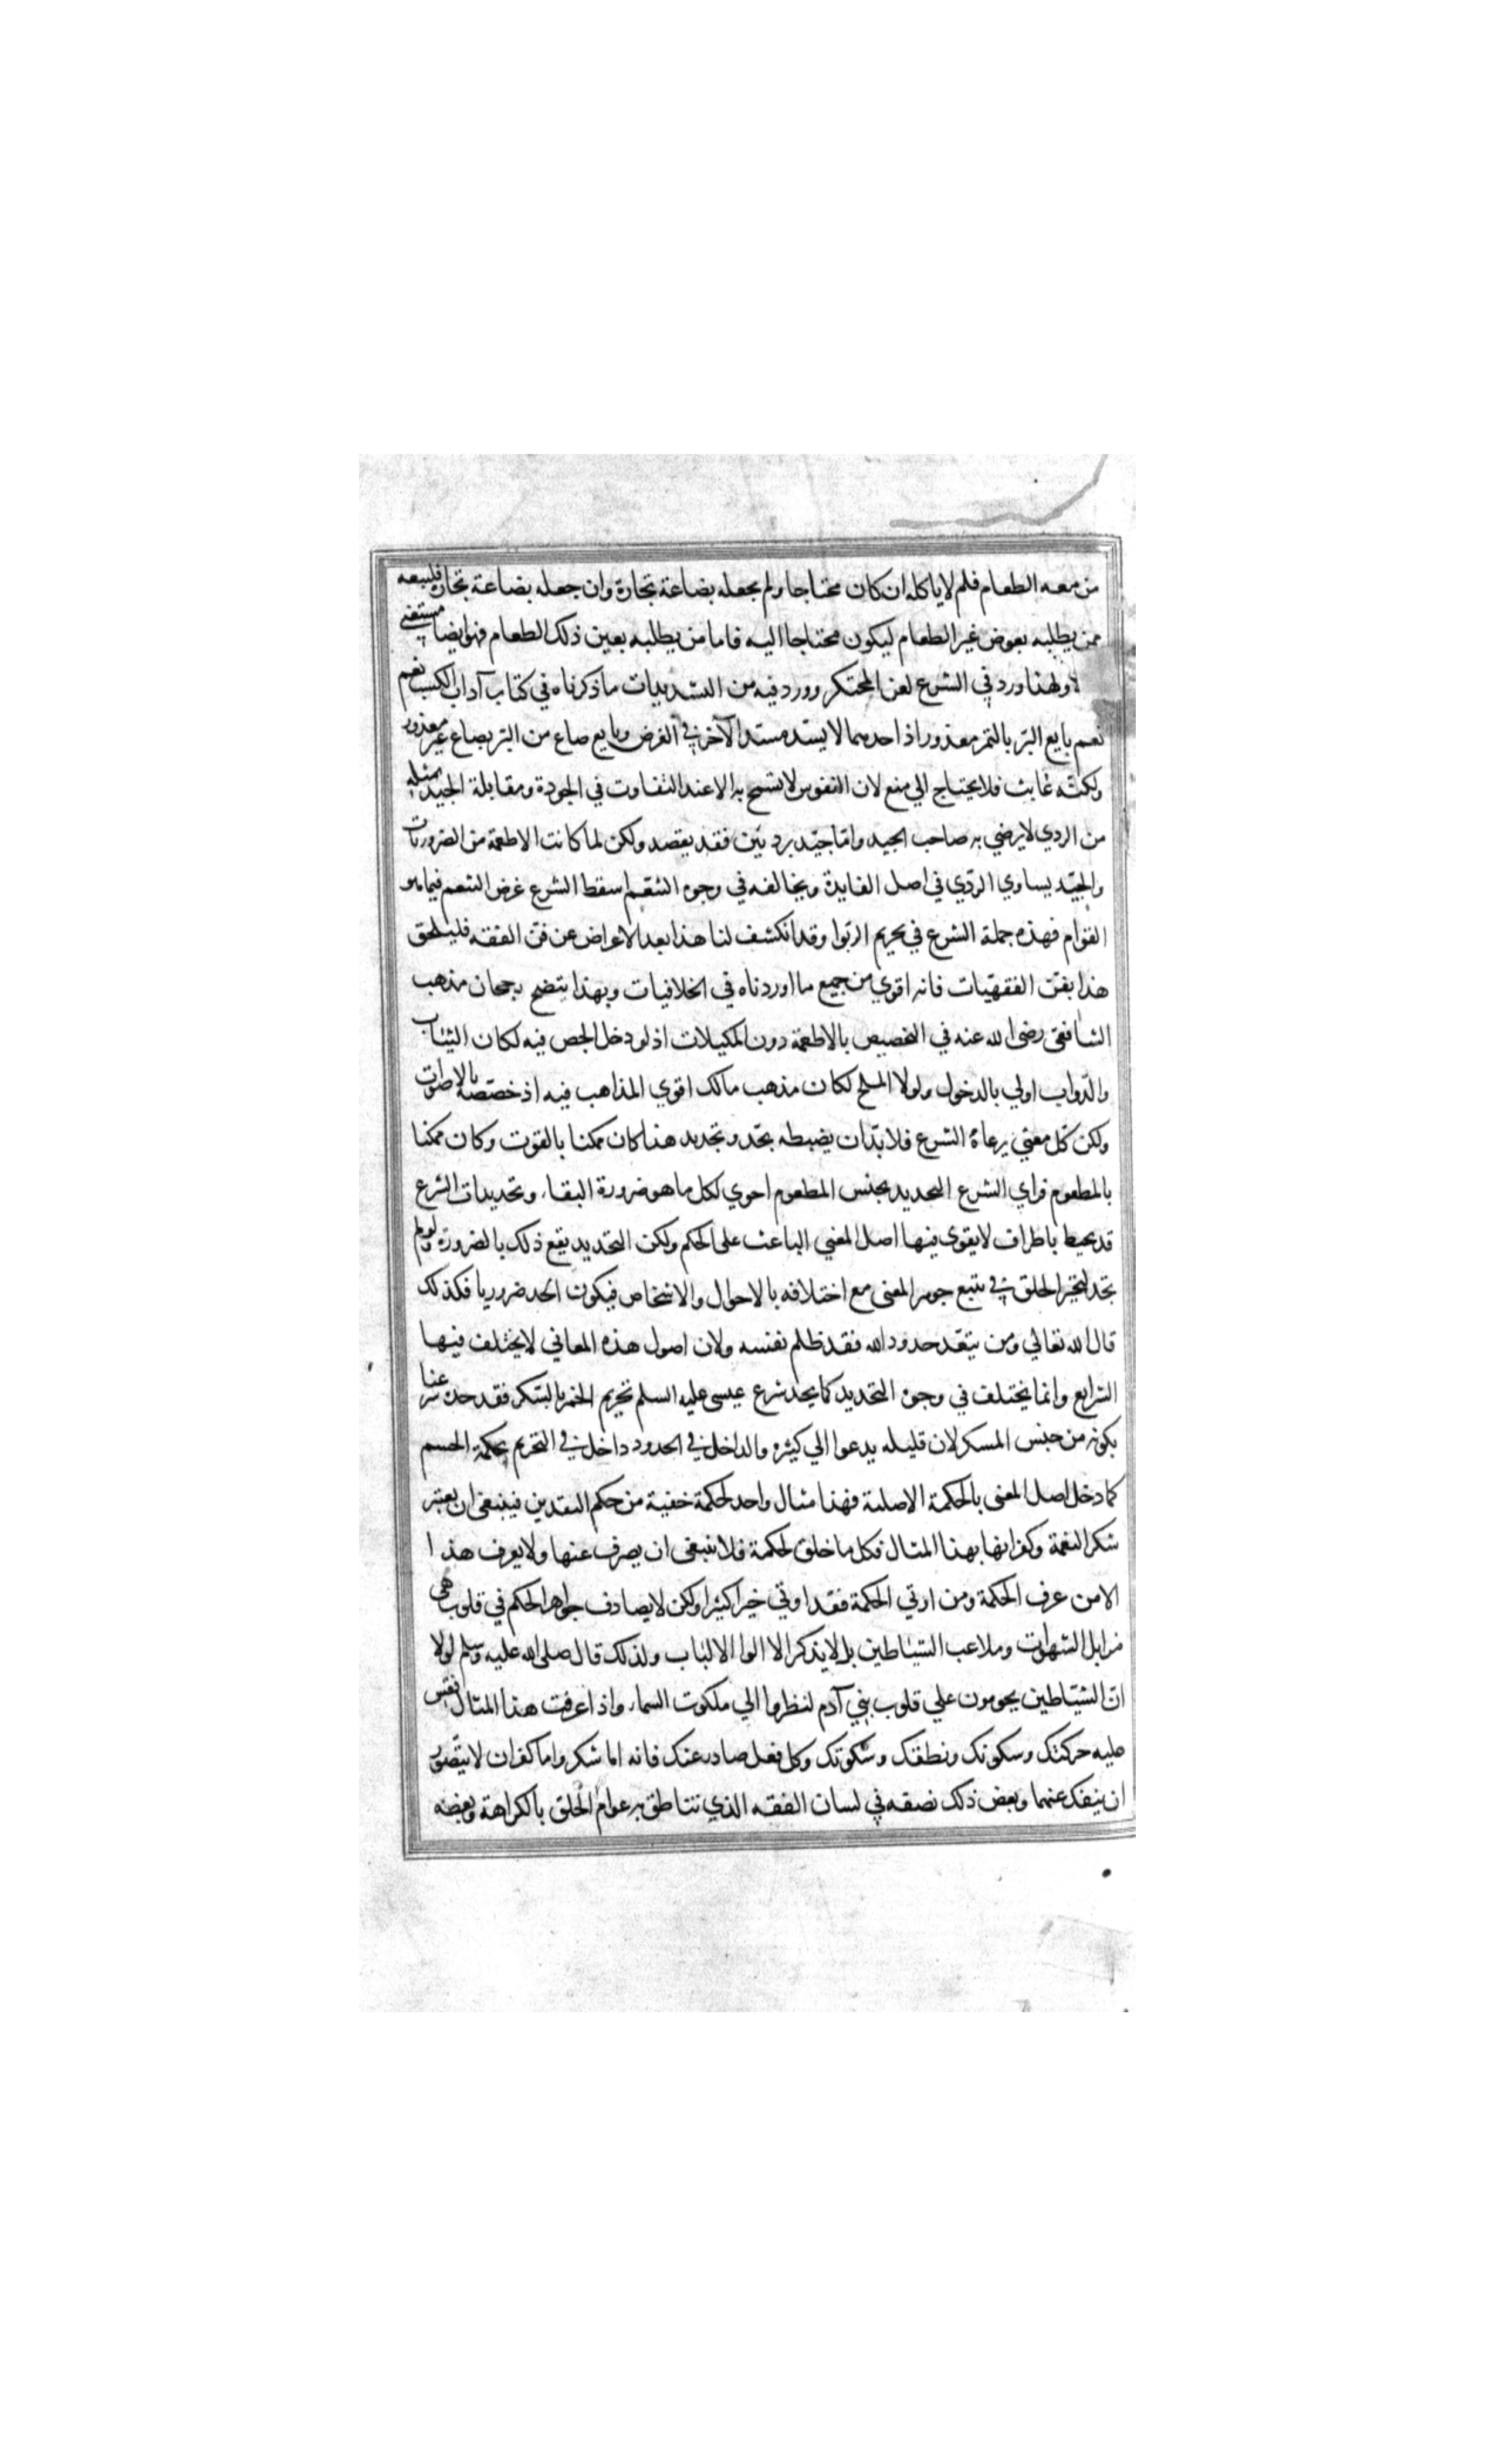 من معه الطعام فلم لا ياكله ان كان محتاجا ولم يجعله بضاعة تجارة وان جعله بضاعة تجارة فليبعه
ممن يطلبه بعوض غير الطعام ليكون محتاجا اليه فاما من يطلبه بعين ذلك الطعام فهو ايضا مستغني
ولهذا ورد في الشرع لعن المحتكر وورد فيه من التشديدات ما ذكرناه في كتاب آداب الكسب نعم
نعم بايع البر بالتمر معذور اذ احدهما لا يسد مسد الآخر في الغرض وبايع صاع من البر بصاع غير معذور
ولكنه عابث فلا يحتاج الي منع لان النفوس لا تسمح به الا عند التفاوت في الجودة ومقابلة الجيد بمثله
من الردي لا يرضي به صاحب الجيد واما جيد برديئين فقد يقصد ولكن لما كانت الاطعمة من الضروريات
والجيد يساوي الردي في اصل الفايدة ويخالفه في وجوه التنعم اسقط الشرع غرض التنعم فيما هو
القوام فهذه جملة الشرع في تحريم الربوا وقد انكشف لنا هذا بعد الاعراض عن فن الفقه فليلحق
هذا بفن الفقهيات فانه اقوي من جميع ما اوردناه في الخلافيات وبهذا يتضح رجحان مذهب
الشافعي رضي الله عنه في التخصيص بالاطعمة دون المكيلات اذ لو دخل الجص فيه لكان الثياب
والدواب اولي بالدخول ولولا الملح لكان مذهب مالك اقوي المذاهب فيه اذ خصصه بالاقوات
ولكن كل معني يرعاه الشرع فلا بد ان يضبطه بحد وتحديد هذا كان ممكنا بالقوت وكان ممكنا
بالمطعوم فراي الشرع التحديد بجنس المطعوم احوي لكل ما هو ضرورة البقاء وتحديدات الشرع
قد يحيط باطراف لا يقوى فيها اصل المعني الباعث على الحكم ولكن التحديد يقع ذلك بالضرورة ولو لم
تحد لتحير الخلق في تتبع جوهر المعنى مع اختلافه بالاحوال والاشخاص فيكون الحد ضروريا فكذلك
قال الله تعالي ومن يتعد حدود الله فقد ظلم نفسه ولان اصول هذه المعاني لا يختلف فيها
الشرايع وانما يختلف في وجوه التحديد كما يحد شرع عيسى عليه السلم تحريم الخمر بالسكر فقد حده شرعنا
بكونه من جنس المسكر لان قليله يدعوا الي كثيره والداخل في الحدود داخل في التحريم بحكمة الحسم
كما دخل اصل المعنى بالحكمة الاصلية فهذا مثال واحد لحكمة خفية من حكم النقدين فينبغي ان يعتبر
شكر النعمة وكفرانها بهذا المثال فكل ما خلق لحكمة فلا ينبغي ان يصرف عنها ولا يعرف هذا
الا من عرف الحكمة ومن اوتي الحكمة فقد اوتي خيرا كثيرا ولكن لا يصادف جواهر الحكم في قلوب هي
مزابل الشهوات وملاعب الشياطين بل لا يذكر الا الوا الالباب ولذلك قال صلى الله عليه وسلم لولا
ان الشياطين يحومون علي قلوب بني آدم لنظروا الي ملكوت السماء واذا عرفت هذا المثال فقس
عليه حركتك وسكونك ونطقك وسكوتك وكل فعل صادر عنك فانه اما شكر واما كفران لا يتصور
ان ينفك عنهما وبعض ذلك نصفه في لسان الفقه الذي تتناطق به عوام الخلق بالكراهة وبعضه